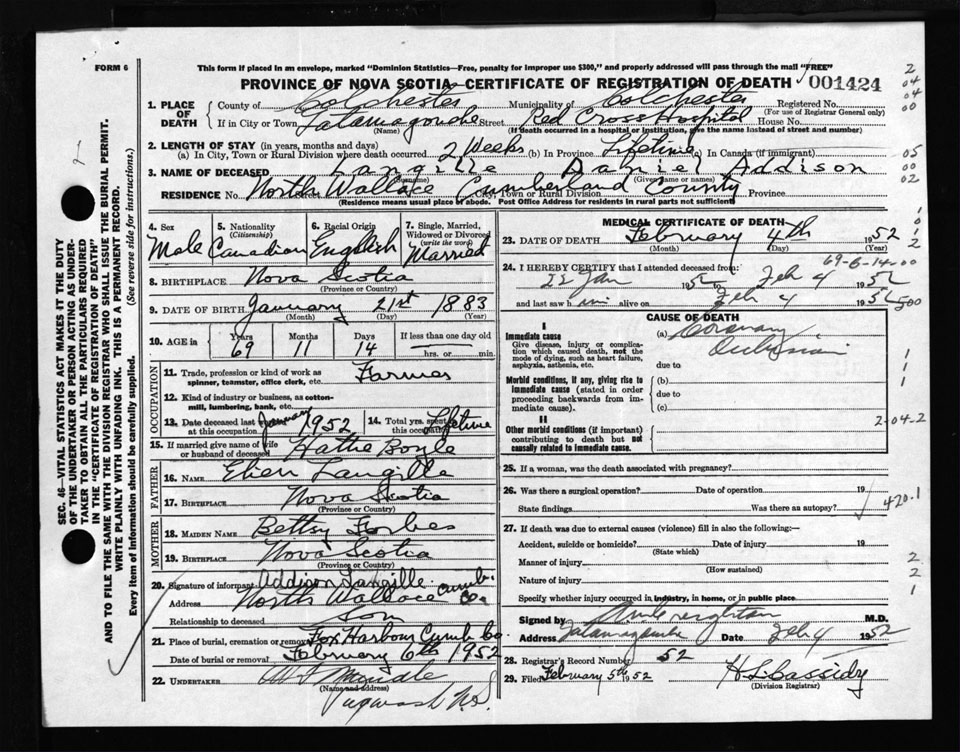 FORM 6
This form if placed in an envelope, marked "Dominion Statistics—Free, penalty for improper use $300," and properly addressed will pass through the mail "FREE"
PROVINCE OF NOVA SCOTIA—CERTIFICATE OF REGISTRATION OF DEATH
001424
1. PLACE OF DEATH
County of Colchester Municipality of Colchester Registered No.
(For use of Registrar General only)
If in City or Town Tatamagouche Street Red Cross Hospital House No.
(Name) (If death occurred in a hospital or institution, give the name instead of street and number)
2. LENGTH OF STAY (in years, months and days)
(a) In City, Town or Rural Division where death occurred 2 Weeks (b) In Province Lifetime (c) In Canada (if immigrant)
3. NAME OF DECEASED Langille Daniel Addison
(Surname) (Given name or names)
RESIDENCE No. North Wallace Cumberland County City, Town or Rural Division Province
(Residence means usual place of abode. Post Office Address for residents in rural parts not sufficient)
4. Sex Male
5. Nationality (Citizenship) Canadian
6. Racial Origin English
7. Single, Married, Widowed or Divorced (write the word) Married
8. BIRTHPLACE Nova Scotia
(Province or Country)
9. DATE OF BIRTH January 21st 1883
(Month) (Day) (Year)
10. AGE in Years Months Days If less than one day
69 11 14 hrs. or min.
OCCUPATION
11. Trade, profession or kind of work as spinner, teamster, office clerk, etc. Farmer
12. Kind of industry or business, as cotton-mill, lumbering, bank, etc.
13. Date deceased last worked at this occupation January 1952
14. Total yrs. spent in this occupation Lifetime
15. If married give name of wife or husband of deceased Hattie Boyle
FATHER
16. NAME Langille
17. BIRTHPLACE Nova Scotia
(Province or Country)
MOTHER
18. MAIDEN NAME Betsy Forbes
19. BIRTHPLACE Nova Scotia
(Province or Country)
20. Signature of informant Addison Langille
Address North Wallace Cumb. Co
Relationship to deceased Son
21. Place of burial, cremation or removal Fox Harbour Cumb Co.
Date of burial or removal February 6th 1952
22. UNDERTAKER
(Name and address)
Pugwash N.S.
MEDICAL CERTIFICATE OF DEATH
23. DATE OF DEATH February 4th 1952
(Month) (Day) (Year)
24. I HEREBY CERTIFY that I attended deceased from:
22 Jan 1952 Feb 4 1952
and last saw him alive on Feb 4 1952
CAUSE OF DEATH
I
Immediate cause
Give disease, injury or complication which caused death, not the mode of dying, such as heart failure, asphyxia, asthenia, etc.
(a) Coronary Occlusion
due to
Morbid conditions, if any, giving rise to immediate cause (stated in order proceeding backwards from immediate cause).
(b)
due to
(c)
II
Other morbid conditions (if important) contributing to death but not causally related to immediate cause.
25. If a woman, was the death associated with pregnancy?
26. Was there a surgical operation? Date of operation 19
State findings Was there an autopsy?
27. If death was due to external causes (violence) fill in also the following:—
Accident, suicide or homicide? Date of injury 19
(State which)
Manner of injury
(How sustained)
Nature of injury
Specify whether injury occurred in industry, in home, or in public place
Signed by M.D.
Address Tatamagouche Date Feb 4 1952
28. Registrar's Record Number 52
29. Filed February 5th 1952 H L Cassidy
(Division Registrar)
69-6-14-00
500
2-04-2
420.1
2
04
04
00
05
00
02
SEC. 46—VITAL STATISTICS ACT MAKES IT THE DUTY
OF THE UNDERTAKER OR PERSON ACTING AS UNDERTAKER
TO OBTAIN ALL THE PARTICULARS REQUIRED
IN THE "CERTIFICATE OF REGISTRATION OF DEATH"
AND TO FILE THE SAME WITH THE DIVISION REGISTRAR WHO SHALL ISSUE THE BURIAL PERMIT.
WRITE PLAINLY WITH UNFADING INK. THIS IS A PERMANENT RECORD.
Every item of information should be carefully supplied. (See reverse side for instructions.)